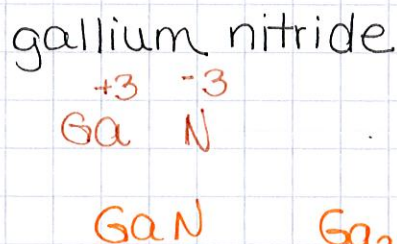 gallium nitride
+3 -3
Ga N
GaN Ga